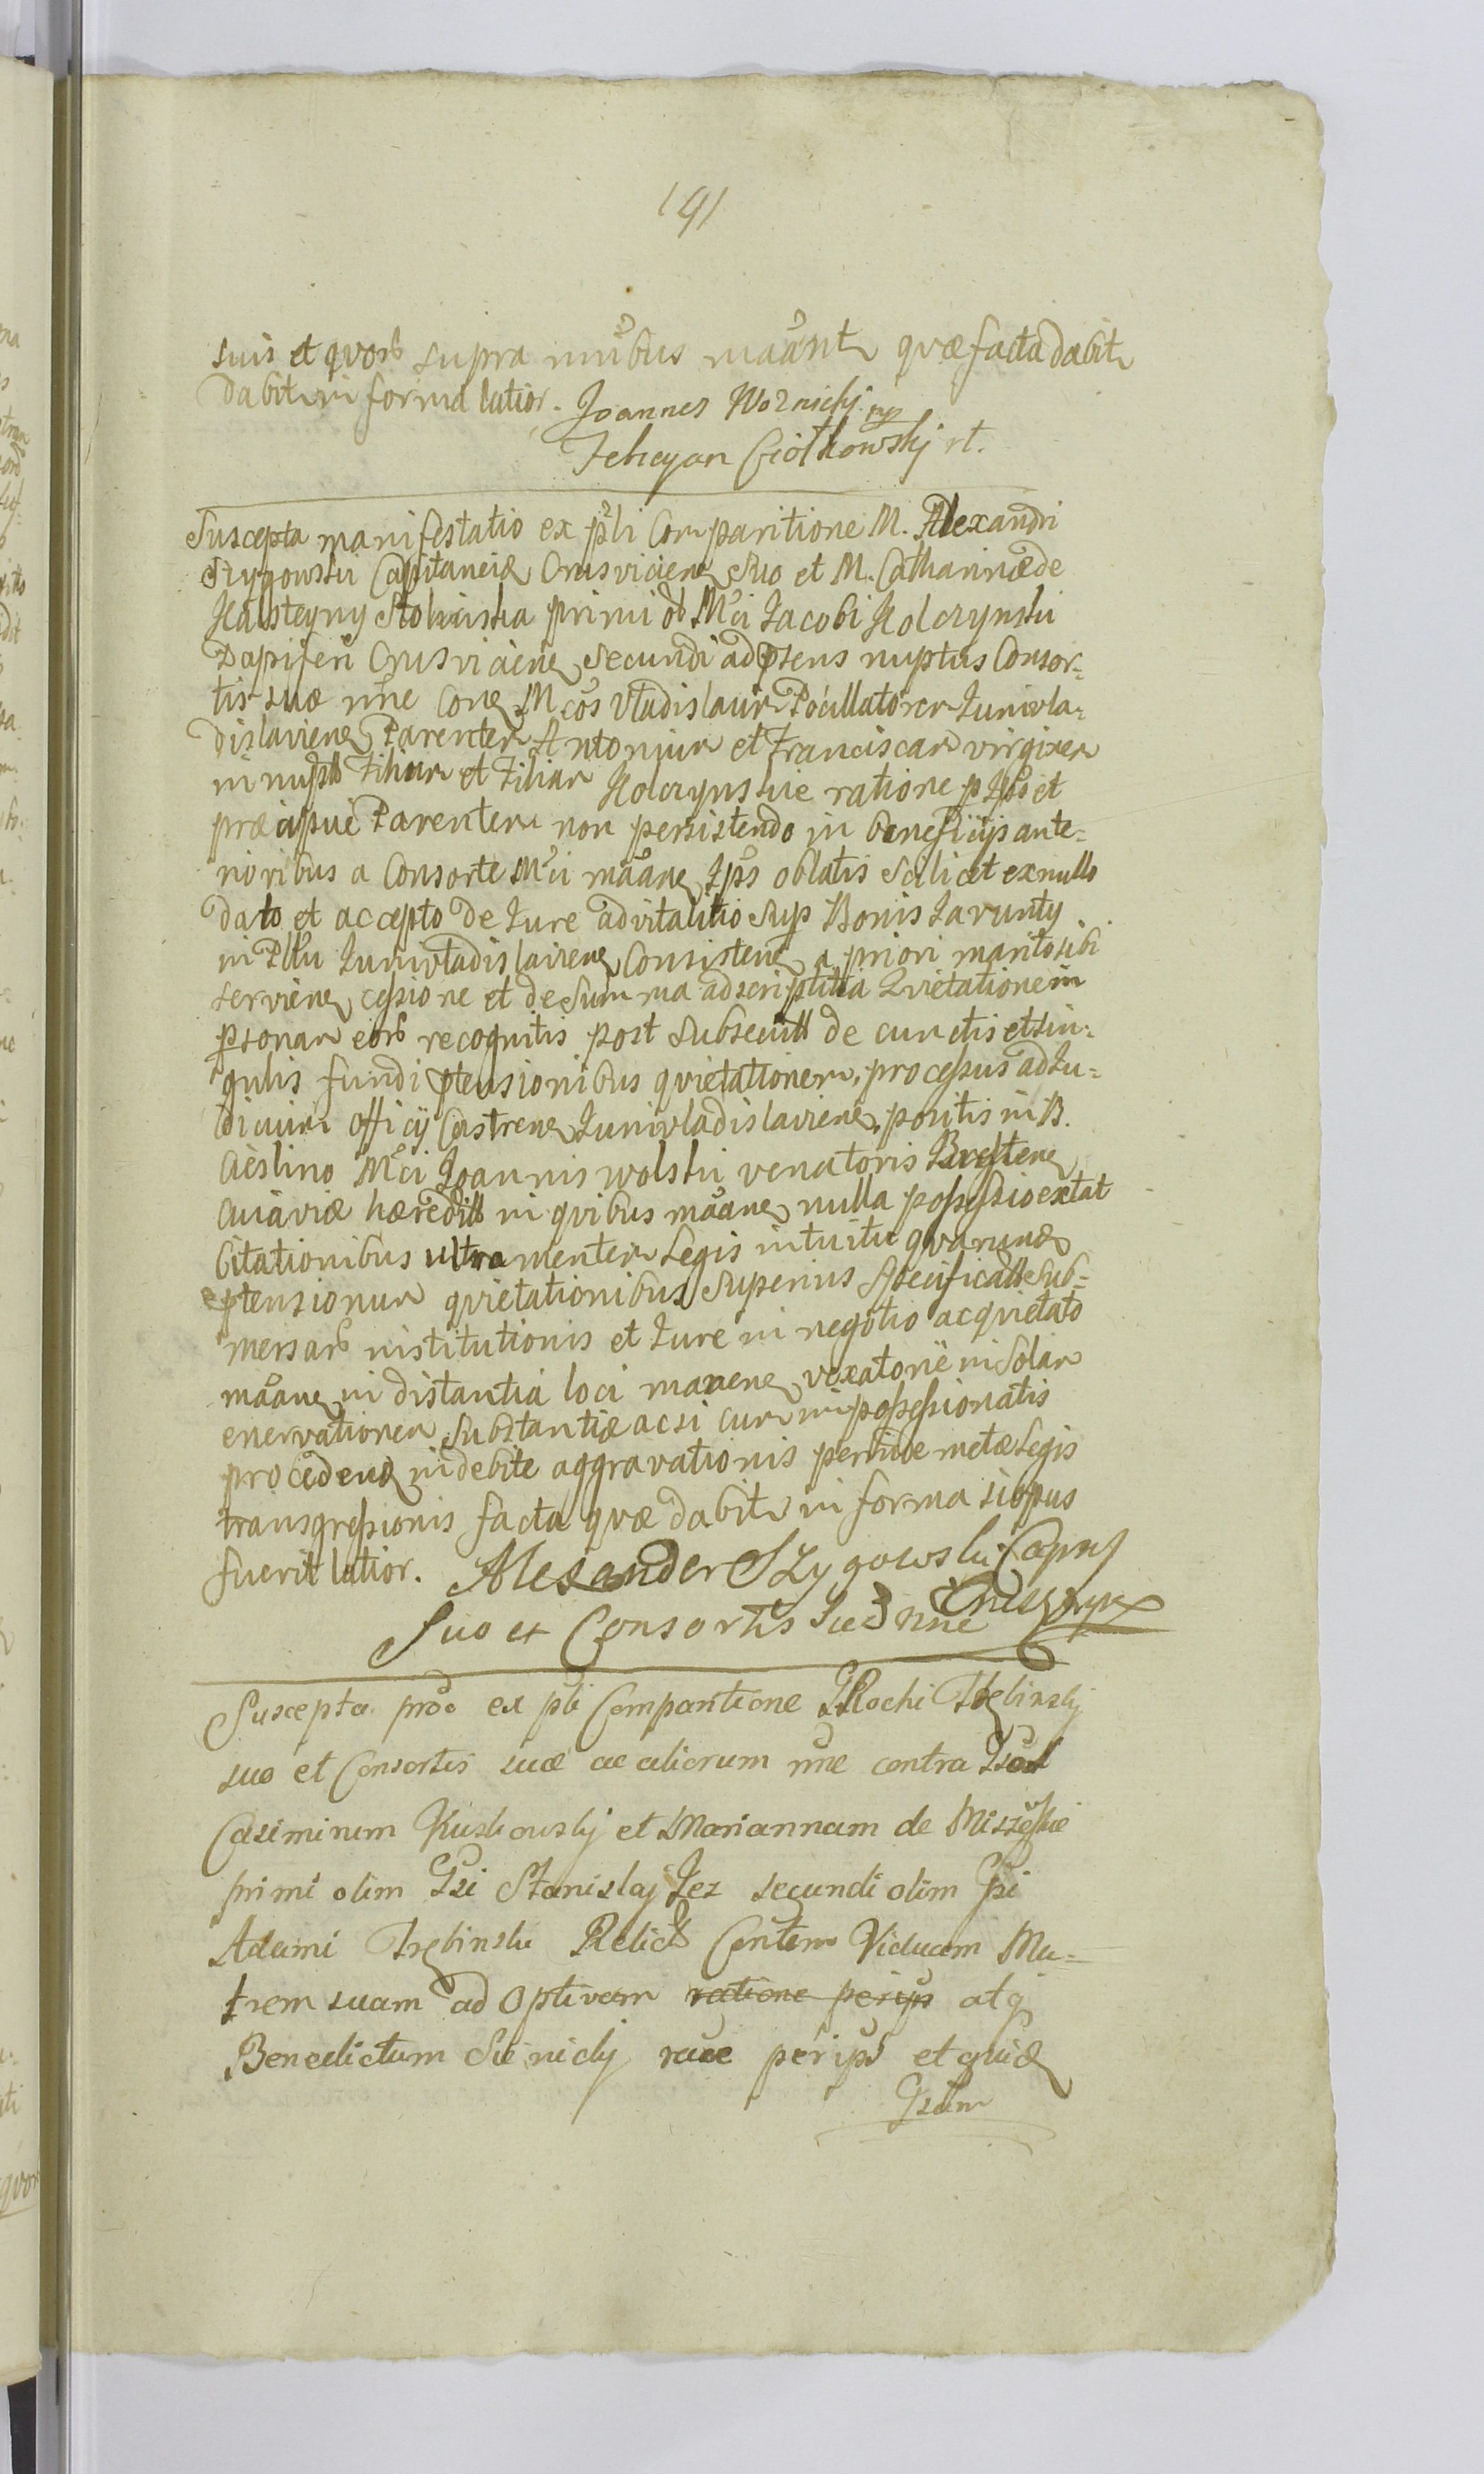 191
suis et qvorb supra nnibus maant quæ facta dabit
dabit in forma latior. Joannes Woznicky mp
Felicyan Ciołkowsky rt.
Suscepta manifestatio ex pli Comparitione M. Alexandri
Szygowski Capitanei Crusviciens suo et M. Catharinæ de
Stolinska primi ol Mci Jacobi Kolczynski
Dapiferi Crusviciens Secundi ad psens nuptus Consor=
tis suæ nne Cone M. cos Vladislaum Pocillatorem Junivla=
dislaviens Parentem Antonium et Franciscam virginem
in nupt Filium et Filiam Kolczynskie ratione p Ipos et
præcipue Parentem non persistendo in beneficijs ante=
rioribus a Consorte Mci maane Ips oblatis scilicet ex nullo
dato et accepto de Jure advitalitio sup Bonis Javunty
in Pttu Junivladislaviens Consistens a priori marito sibi
serviens cessione et de summa adscriptitia Qvietatione in
psonam eorb recognitis post subsecutt de cunctis et sin=
gulis fundi ptensionibus qvietationem, processus ad Ju=
dicium Officij Castrens Junivladislaviens, positis in B.
Cieslino Mci Joannis Wolski venatoris Brestens
Cuiaviæ hæreditt in qvibus maane nulla possessio extat
Citationibus ultra mentem Legis intuitu qvarund
ptensionum qvietationibus superius specificatt sub=
mersarb institutionis et Jure in negotio acqvietato
maane in distantia loci manens vexatorie in Solam
enervationem substantiæ acsi cum impossessionatis
procedend indebite aggravationis perinde metæ Legis
transgressionis facta qvæ dabit in forma si opus
fuerit latior. Alexander Szygowski Capnus
Crusv mpx
Suo et Consortis Suæ nne
Suscepta proo ex pli Comparitione G Rochi Trębinsky
suo et Consortis suæ ac aliorum nne contra Gsos
Casimirum Kuskowsky et Mariannam de
primi olim Gsi Stanislaj Jez secundi olim Gsi
Adami Trębinski Relict Contem Viduam Ma=
trem suam adoptivam ratione perips atq
Benedictum Sienicky raoe perips et quid
Gsum